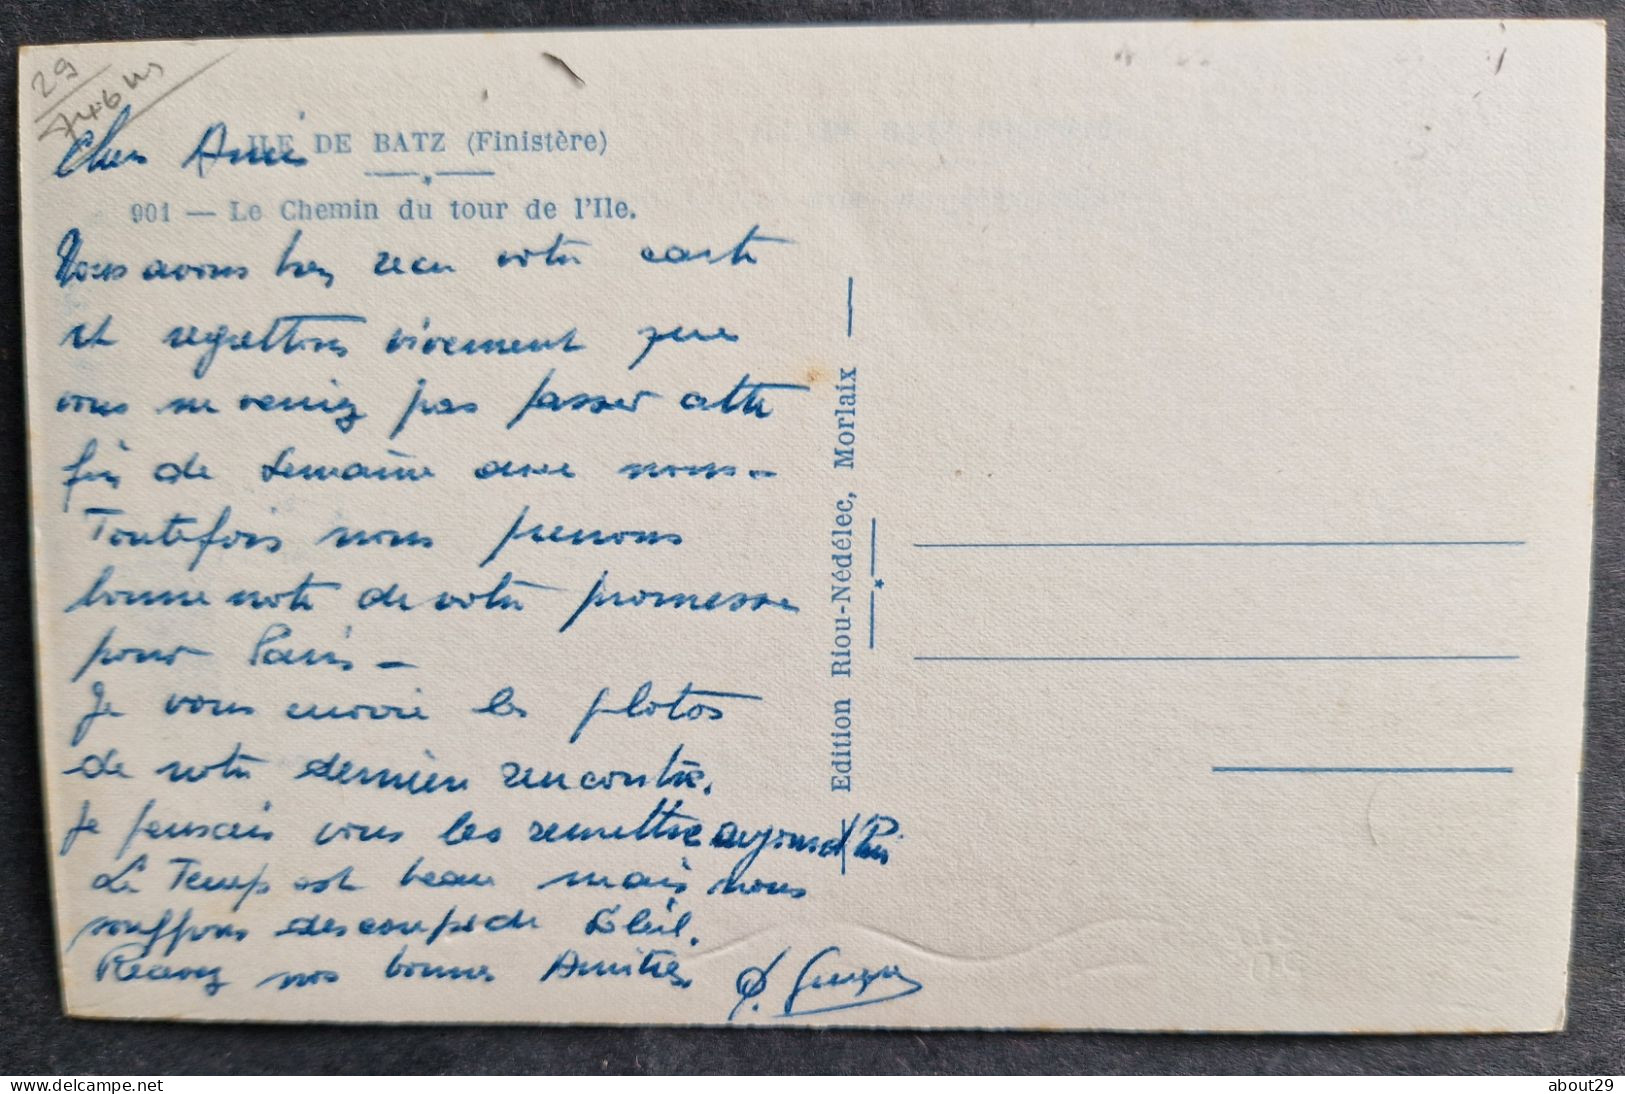 29
Chers Amis
ILE DE BATZ (Finistère)
901 — Le Chemin du tour de l'Ile.
Nous avons bien reçu votre carte
et regrettons vivement que
vous ne veniez pas passer cette
fin de semaine avec nous -
Toutefois nous prenons
bonne note de votre promesse
pour Paris -
Je vous envoie les photos
de notre dernière rencontre.
Je pensais vous les remettre aujourd'hui
Le Temps est beau mais nous
souffrons des coups de Soleil.
Recevez nos bonnes Amitiés
Edition Riou-Nédélec, Morlaix
about29